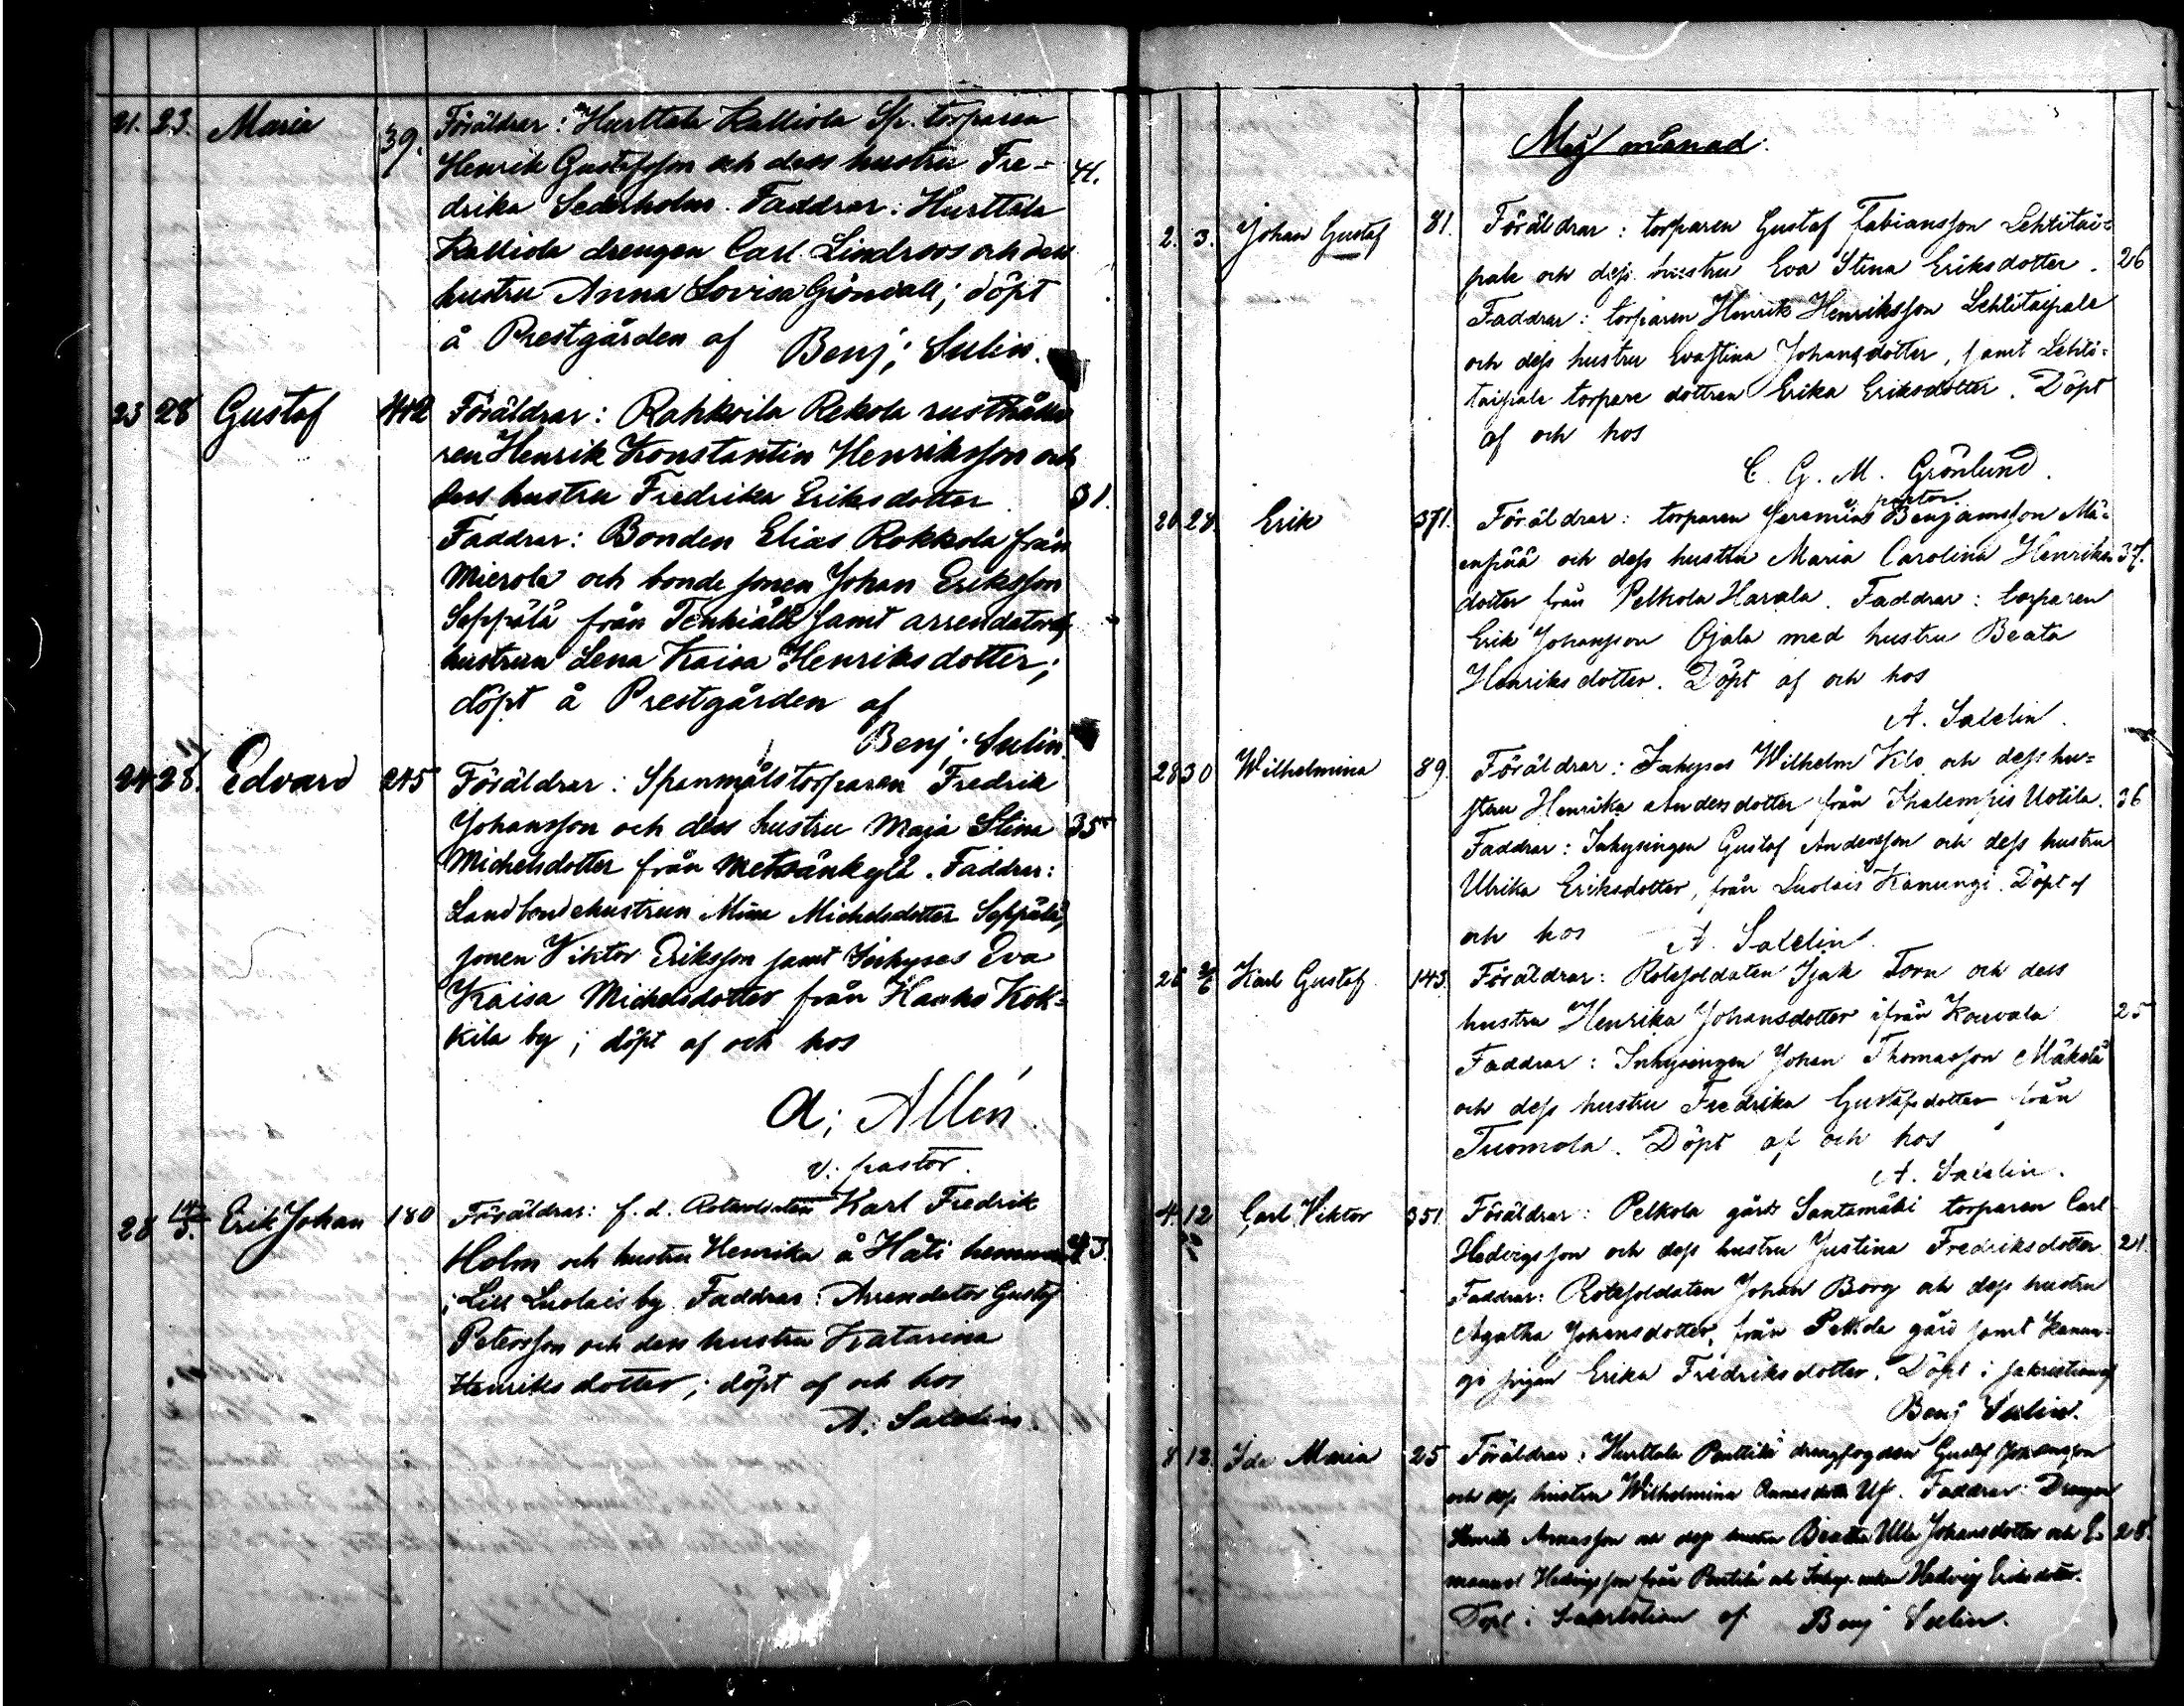 21. 23. Maria 39. Föräldrar: Hurttala Kalliola Sp. torparen
Henrik Gustafsson och dess hustru Fre- 41.
drika Sederholm. Faddrar: Hurttala
Kalliola drengen Carl Lindroos och dess
hustru Anna Lovisa Gröndall; döpt
å Prestgården af Benj; Sulin.
23 28 Gustaf 442 Föräldrar: Rahkoila Rekola rusthålla
ren Henrik Konstantin Henriksson och
dess hustru Fredrika Eriksdotter 31.
Faddrar: Bonden Elias Rokkola från
Mierola och bonde sonen Johan Eriksson
Seppälä från Tenhiälä samt arrendators
hustrun Lena Kaisa Henriksdotter;
döpt å Prestgården af
Benj; Sulin.
24 28. Edvard 245 Föräldrar: Spanmålstorparen Fredrik
Johansson och dess hustru Maja Stina 35
Michelsdotter från Metsänkylä. Faddrar:
Landbondehustrun Mina Michelsdotter Seppälä,
sonen Viktor Eriksson samt Inhyses Eva
Kaisa Michelsdotter från Hauho Kok-
kila by; döpt af och hos
A; Allén.
v. pastor.
28 14/5. Erik Johan 180 Föräldrar: f. d. Rotesoldaten Karl Fredrik
Holm och hustru Henrika å Häti hemman 43.
i Lill Luolais by. Faddrar: Arrendator Gustaf
Petersson och dess hustru Katarina
Henriksdotter; döpt af och hos
A. Salelin.
Maj månad.
2. 3. Johan Gustaf 81. Föräldrar: torparen Gustaf Fabiansson Lehtitai-
pale och dess hustru Eva Stina Eriksdotter. 26
Faddrar: torparen Henrik Henriksson Lehtitaipale
och dess hustru Evastina Johansdotter, samt Lehti-
taipale torpare dottren Erika Eriksdotter. Döpt
af och hos
C. G. M. Grönlund.
v. pastor.
20. 28. Erik 371. Föräldrar: torparen Jeremias Benjamsson Mä-
enpää och dess hustru Maria Carolina Henriks 37.
dotter från Pelkola Harala. Faddrar: torparen
Erik Johansson Ojala med hustru Beata
Henriksdotter. Döpt af och hos
A. Salelin.
28 30 Wilhelmina 89. Föräldrar: Inhyses Wilhelm Kilo och dess hu-
stru Henrika Andersdotter från Thalempis Uotila. 36
Faddrar: Inhysingen Gustaf Andersson och dess hustru
Ulrika Eriksdotter, från Luolais Kanungi. Döpt af
och hos A. Salelin.
26 2/6 Karl Gustaf 143. Föräldrar: Rotesoldaten Isak Torn och dess
hustru Henrika Johansdotter ifrån Kouvala 25
Faddrar: Inhysingen Johan Thomasson Mäkelä
och dess hustru Fredrika Gustafsdotter från
Tuomola. Döpt af och hos
A. Salelin.
4. 12 Carl Viktor 351. Föräldrar: Pelkola gårds Santamäki torparen Carl
Hedvigsson och dess hustru Justina Fredriksdotter 21.
Faddrar: Rotesoldaten Johan Borg och dess hustru
Agatha Johansdotter, från Pelkola gård samt Kanun-
gi pigan Erika Fredriksdotter. Döpt i sakristian af
Benj Sulin.
8 12. Ida Maria 25 Föräldrar: Hurttala Penttilä drengfogden Gustaf Johansson
och dess hustru Wilhelmina Ulf. Faddrar: Drengen
Henrik Annasson och dess hustru Beata Ulla Johansdotter och E- 28.
manuel Hedvigsson från Penttilä och Inhys enkan Hedvig Eriksdotter.
Döpt i Sakristian af Benj Sulin.